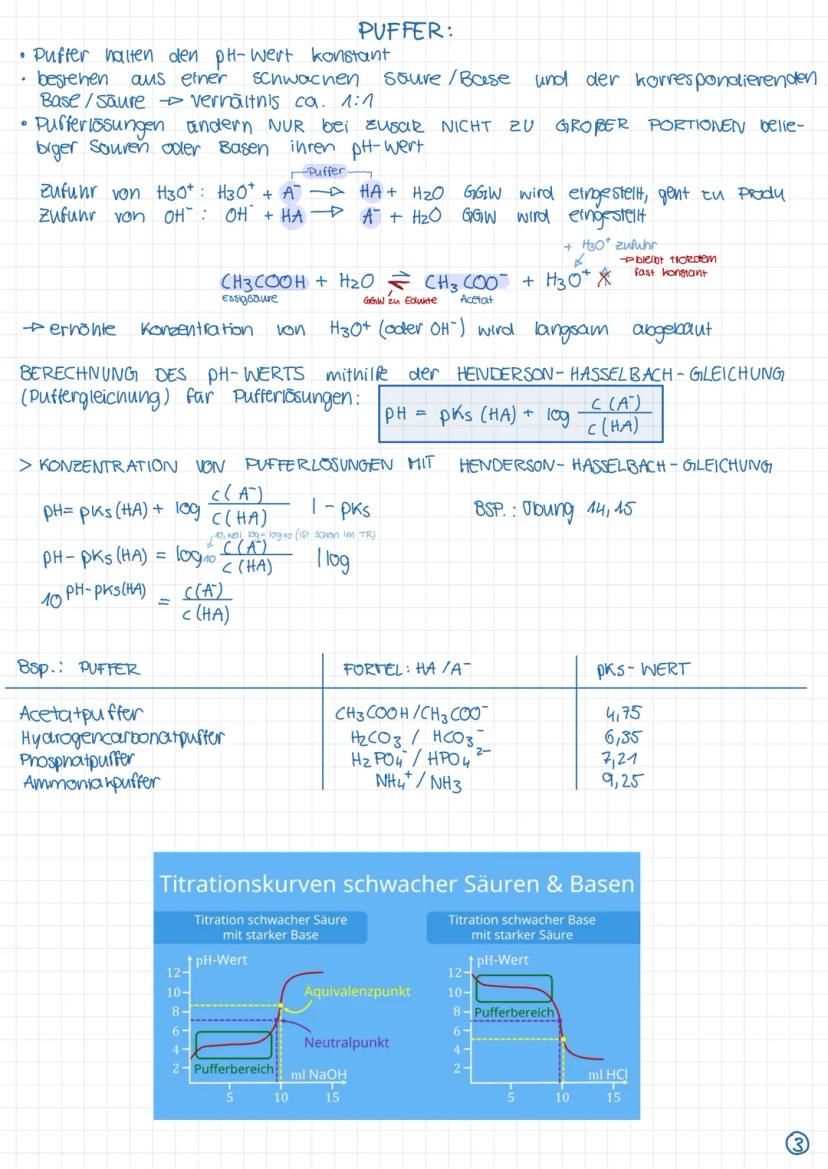 PUFFER:
• Puffer halten den pH-Wert konstant
• bestehen aus einer schwachen Säure/Base und der korrespondierenden
Base/Säure → Verhältnis ca. 1:1
• Pufferlösungen ändern NUR bei Zusatz NICHT ZU GROßER PORTIONEN belie-
biger Säuren oder Basen ihren pH-Wert
Puffer
Zufuhr von H3O⁺: H3O⁺ + A⁻ → HA + H2O GGW wird eingestellt, geht zu Produ
Zufuhr von OH⁻: OH⁻ + HA → A⁻ + H2O GGW wird eingestellt
+ H3O⁺ Zufuhr
→ bleibt trotzdem
fast konstant
CH3COOH + H2O ⇌ CH3COO⁻ + H3O⁺
Essigsäure GGW zu Edukte Acetat
→ erhöhte Konzentration von H3O⁺ (oder OH⁻) wird langsam abgebaut
BERECHNUNG DES pH-WERTS mithilfe der HENDERSON-HASSELBACH-GLEICHUNG
(Puffergleichung) für Pufferlösungen:
pH = pKs (HA) + log c(A⁻) / c(HA)
> KONZENTRATION VON PUFFERLÖSUNGEN MIT HENDERSON-HASSELBACH-GLEICHUNG
pH = pKs (HA) + log c(A⁻) / c(HA) | - pKs
BSP.: Übung 14, 15
10, weil log = log10 (ist schon im TR)
pH - pKs (HA) = log10 c(A⁻) / c(HA) | log
10^(pH-pKs(HA)) = c(A⁻) / c(HA)
Bsp.: PUFFER FORMEL: HA/A⁻ pKs-WERT
Acetatpuffer CH3COOH/CH3COO⁻ 4,75
Hydrogencarbonatpuffer H2CO3 / HCO3⁻ 6,35
Phosphatpuffer H2PO4⁻ / HPO4²⁻ 7,21
Ammoniakpuffer NH4⁺/NH3 9,25
Titrationskurven schwacher Säuren & Basen
Titration schwacher Säure
mit starker Base
pH-Wert
12
10
8
6
4
2
Äquivalenzpunkt
Neutralpunkt
Pufferbereich
ml NaOH
5 10 15
Titration schwacher Base
mit starker Säure
pH-Wert
12
10
8
6
4
2
Pufferbereich
ml HCl
5 10 15
3